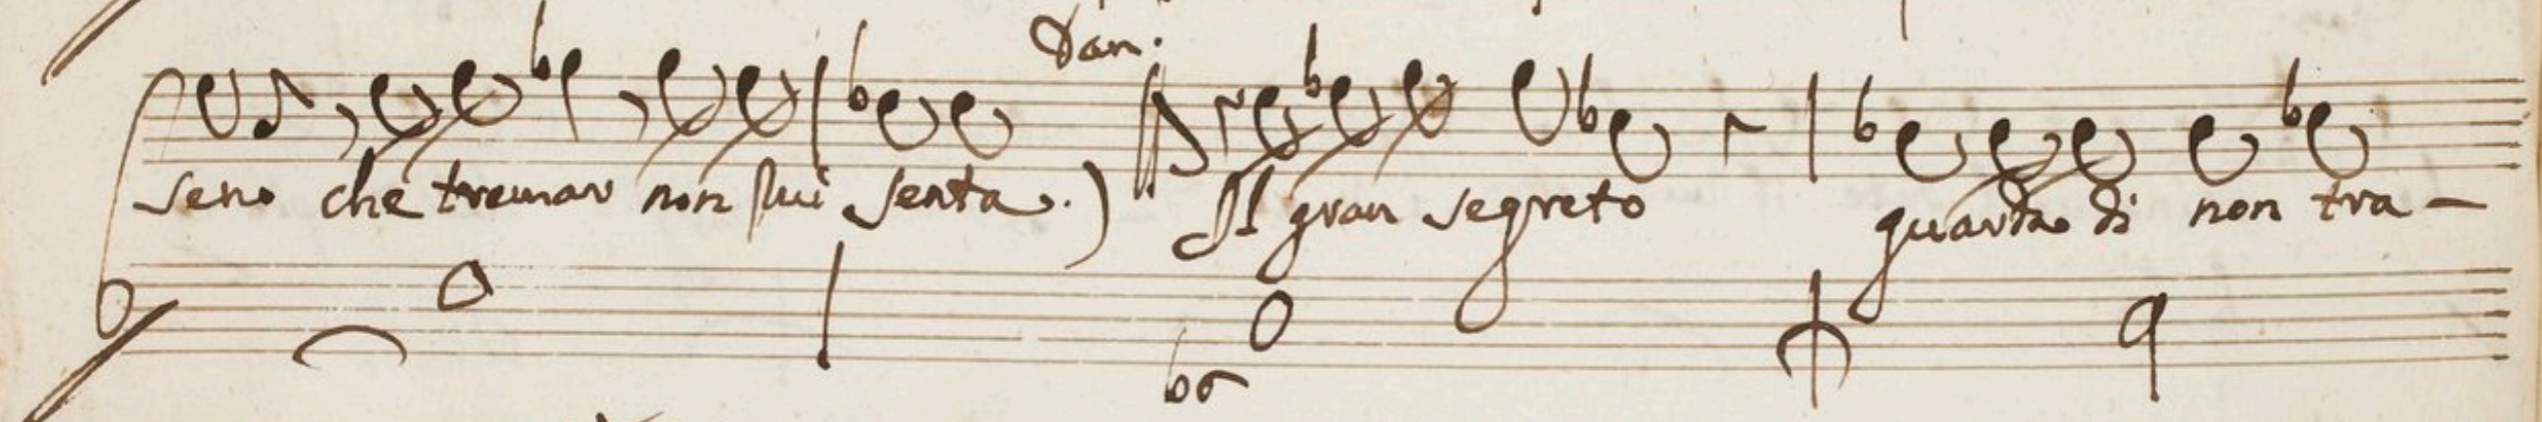 Dan.
seno che tremar non lui senta.) Il gran segreto guarda di non tra-
b6